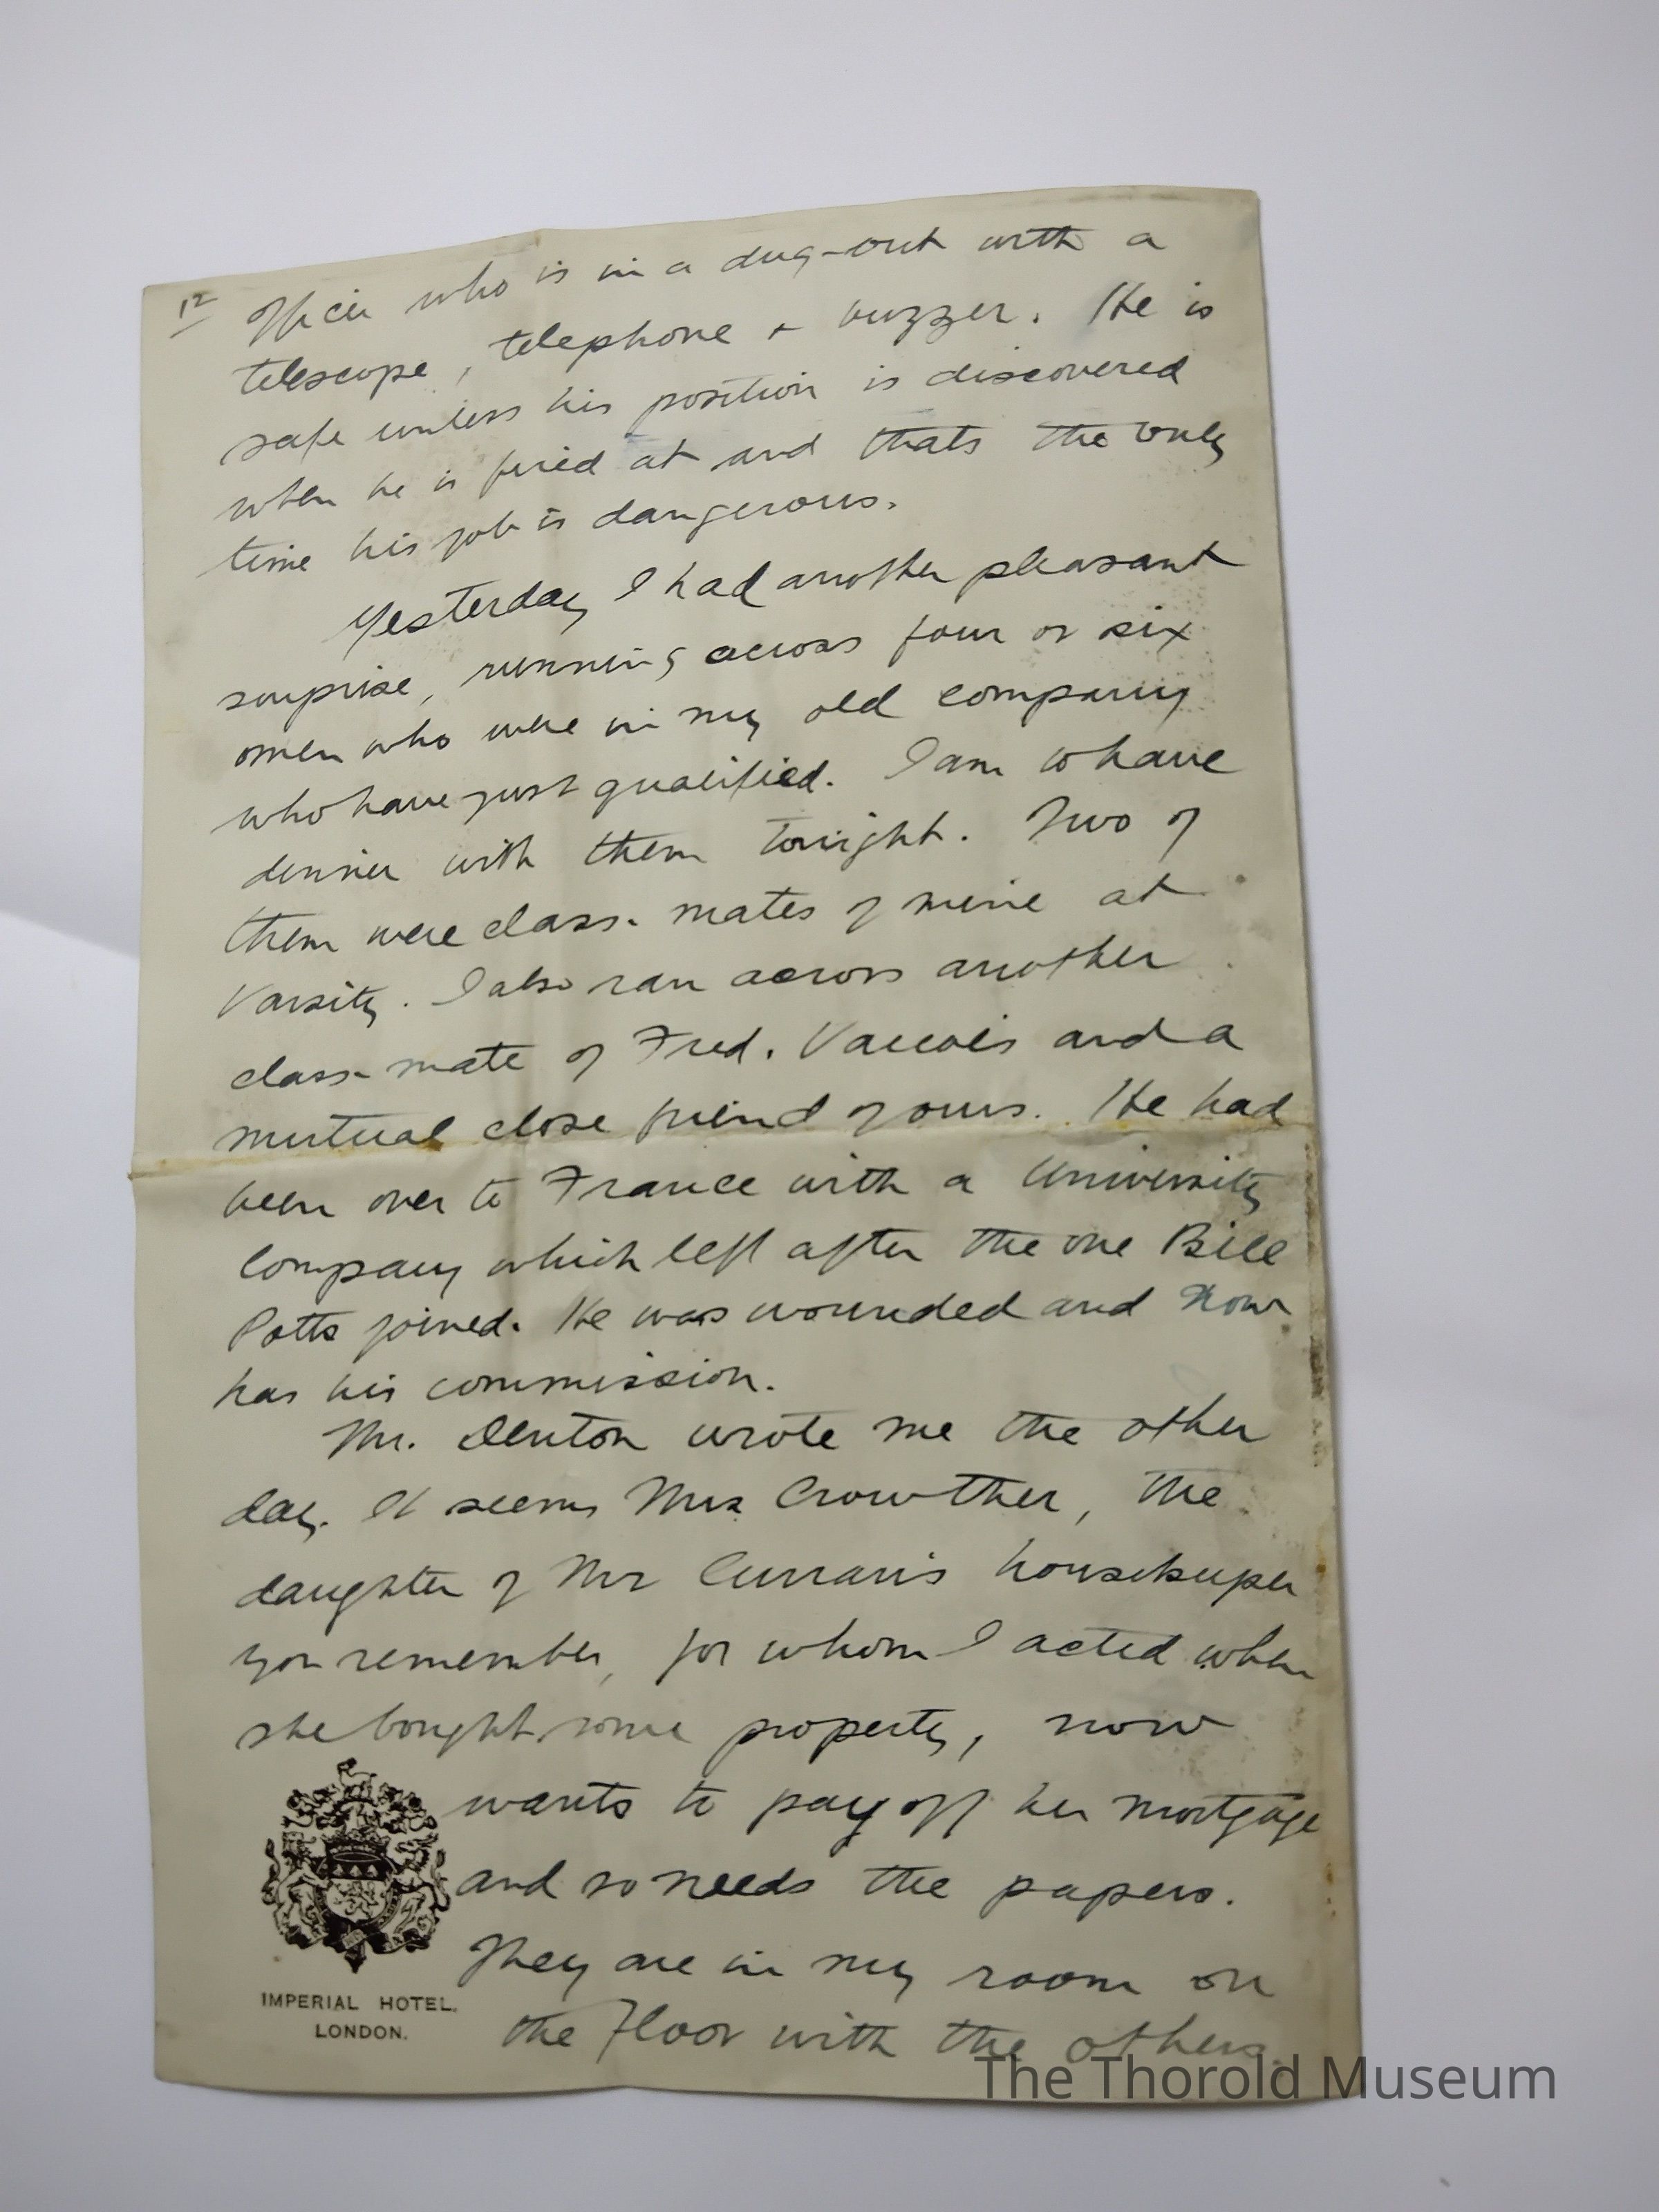 12
officer who is in a dug-out with a
telescope, telephone + buzzer. He is
safe unless his position is discovered
when he is fired at and thats the only
time his job is dangerous.
Yesterday I had another pleasant
surprise, running across four or six
men who were in my old company
who have just qualified. I am to have
dinner with them tonight. Two of
them were class-mates of mine at
Varsity. I also ran across another
class-mate of Fred. and a
mutual close friend of ours. He had
been over to France with a University
Company which left after the one Bill
Potts joined. He was wounded and now
has his commission.
Mr. Denton wrote me the other
day. It seems Mrs Crowther, the
daughter of Mr Curran's housekeeper
you remember, for whom I acted when
she bought some property, now
wants to pay off her mortgage
and so needs the papers.
They are in my room on
the floor with the others.
IMPERIAL HOTEL,
LONDON.
The Thorold Museum